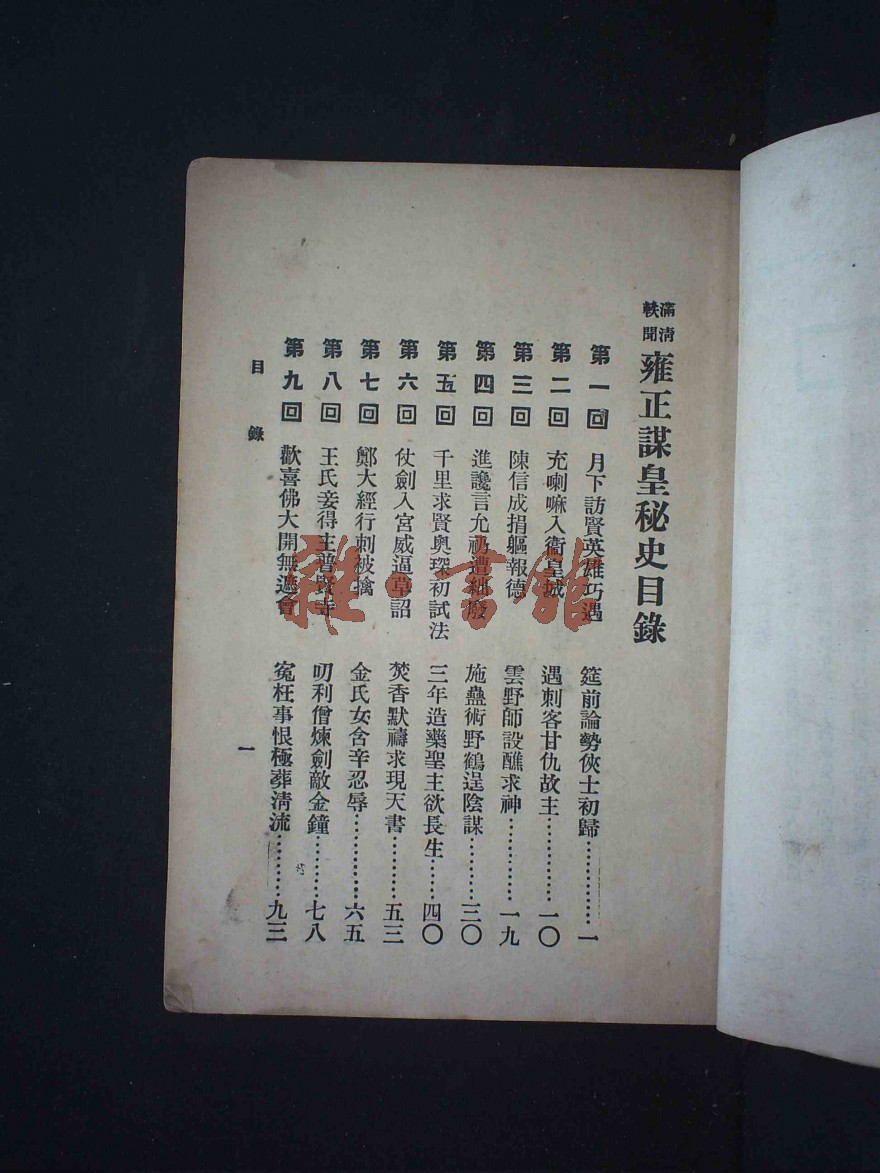 滿清軼聞 雍正謀皇秘史目錄
第一回 月下訪賢英雄巧遇 筵前論勢俠士初歸…………一
第二回 充喇嘛入衞皇城 遇刺客甘仇故主…………一〇
第三回 陳信成捐軀報德 雲野師設醮求神…………一九
第四回 進讒言允礽遭絀廢 施蠱術野鶴逞陰謀………三〇
第五回 千里求賢奧琛初試法 三年造藥聖主欲長生……四〇
第六回 仗劍入宮威逼草詔 焚香默禱求現天書………五三
第七回 鄭大經行刺被擒 金氏女含辛忍辱…………六五
第八回 王氏妾得主普賢寺 叨利僧煉劍敵金鐘………七八
第九回 歡喜佛大開無遮會 冤枉事恨極葬清流………九三
目錄
一
雜·書館